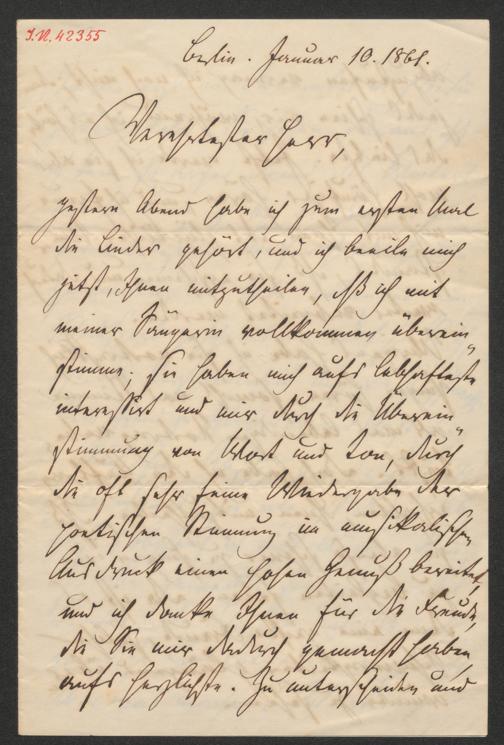 I.N. 42355
Berlin. Januar 10. 1861.
Verehrtester Herr,
gestern Abend habe ich zum ersten Mal
die Lieder gehört, und ich beeile mich
jetzt, Ihnen mitzutheilen, daß ich mit
meiner Sängerin vollkommen überein"
stimme. Sie haben mich aufs lebhafteste
interessirt und mir durch die Überein"
stimmung von Wort und Ton, durch
die oft sehr feine Wiedergabe der
poetischen Stimmung im musikalischen
Ausdruck einen hohen Genuß bereitet,
und ich danke Ihnen für die Freude,
die Sie mir dadurch gemacht haben,
aufs herzlichste. Zu unterscheiden und